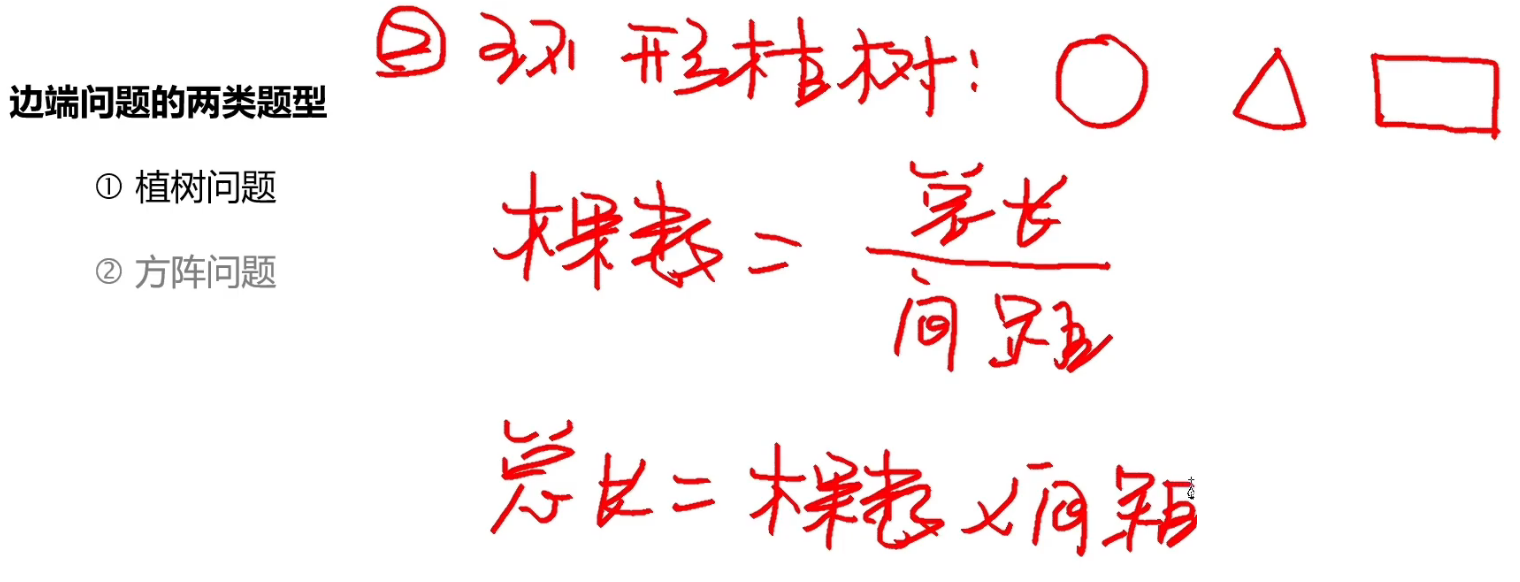 边端问题的两类题型
① 植树问题
② 方阵问题
② 环形植树:
棵数 = 总长/间距
总长 = 棵数 × 间距